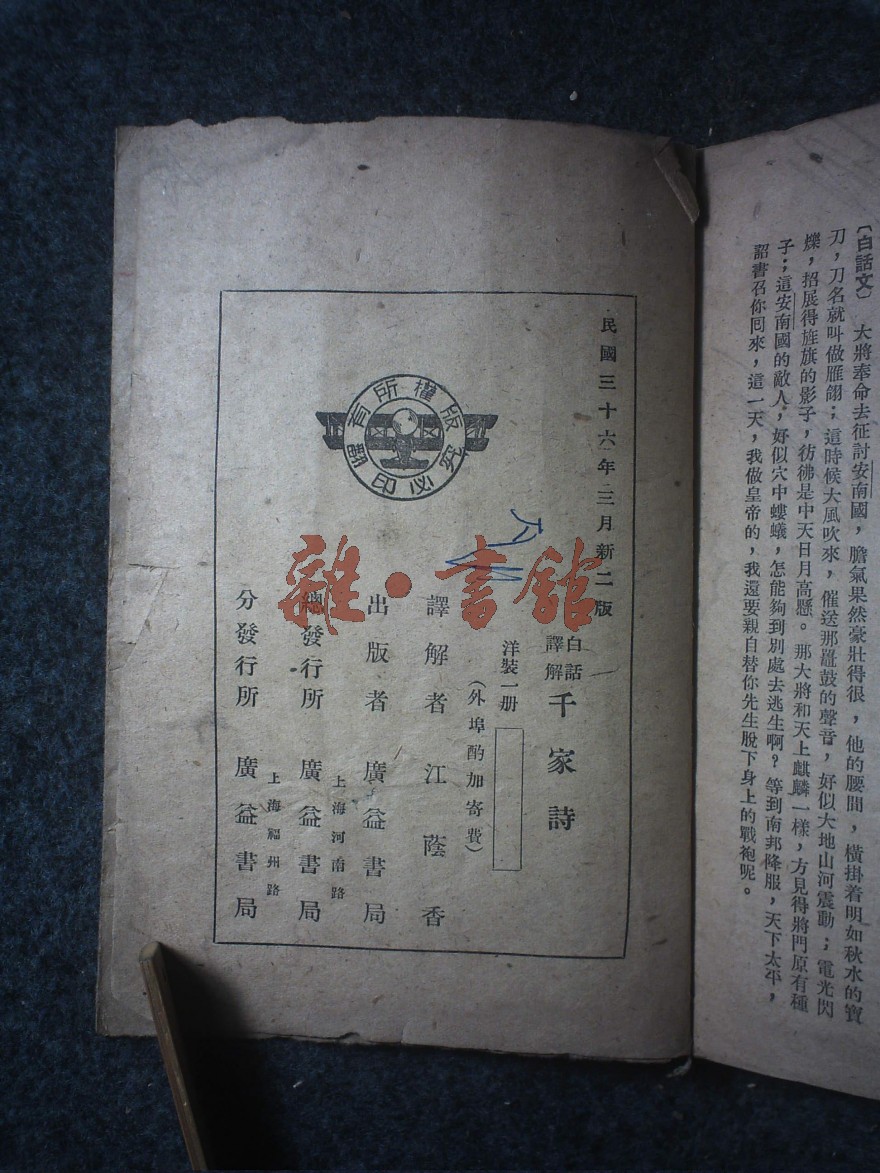 〔白話文〕　大將奉命去征討安南國，膽氣果然豪壯得很，他的腰間，橫掛着明如秋水的寶
刀，刀名就叫做雁翎；這時候大風吹來，催送那鼉鼓的聲音，好似大地山河震動；電光閃
爍，招展得旌旗的影子，彷彿是中天日月高懸。那大將和天上麒麟一樣，方見得將門原有種
子；這安南國的敵人，好似穴中螻蟻，怎能夠到別處去逃生啊？等到南邦降服，天下太平，
詔書召你囘來，這一天，我做皇帝的，我還要親自替你先生脫下身上的戰袍呢。
民國三十六年三月新二版
白話譯解千家詩
洋裝一册
（外埠酌加寄費）
譯解者　江蔭香
出版者　廣益書局
上海河南路
總發行所　廣益書局
上海福州路
分發行所　廣益書局
版權所有
翻印必究
雜·書館